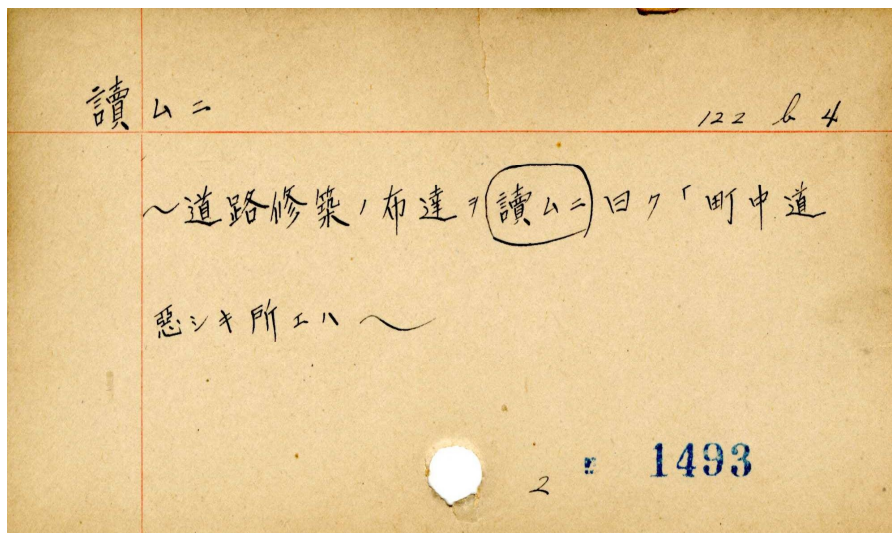 讀ムニ
122 b 4
〜道路修築ノ布達ヲ讀ムニ曰ク「町中道
惡シキ所エハ〜
2 1493